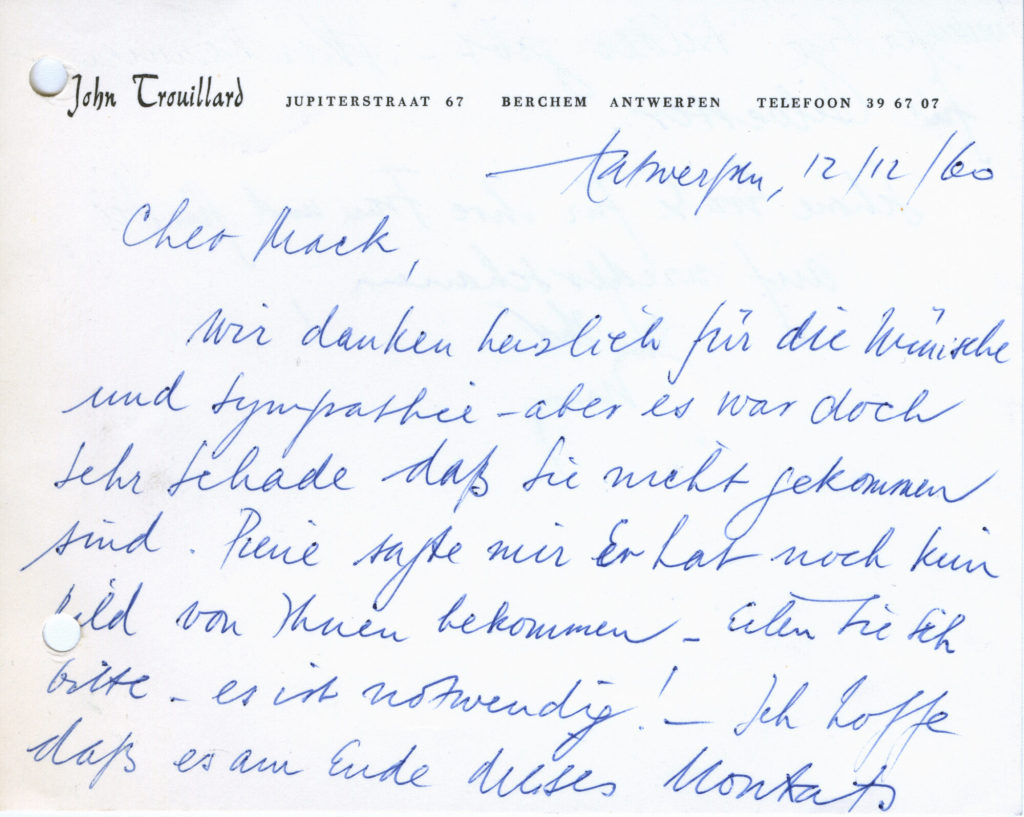 John Trouillard JUPITERSTRAAT 67 BERCHEM ANTWERPEN TELEFOON 39 67 07
Antwerpen, 12/12/60
Cher Mack,
Wir danken herzlich für die Wünsche
und Sympathie – aber es war doch
sehr schade daß Sie nicht gekommen
sind. Piene sagte mir Er hat noch kein
bild von Ihnen bekommen – Eilen Sie Sich
bitte – es ist notwendig! – Ich hoffe
daß es am Ende dieses Montats